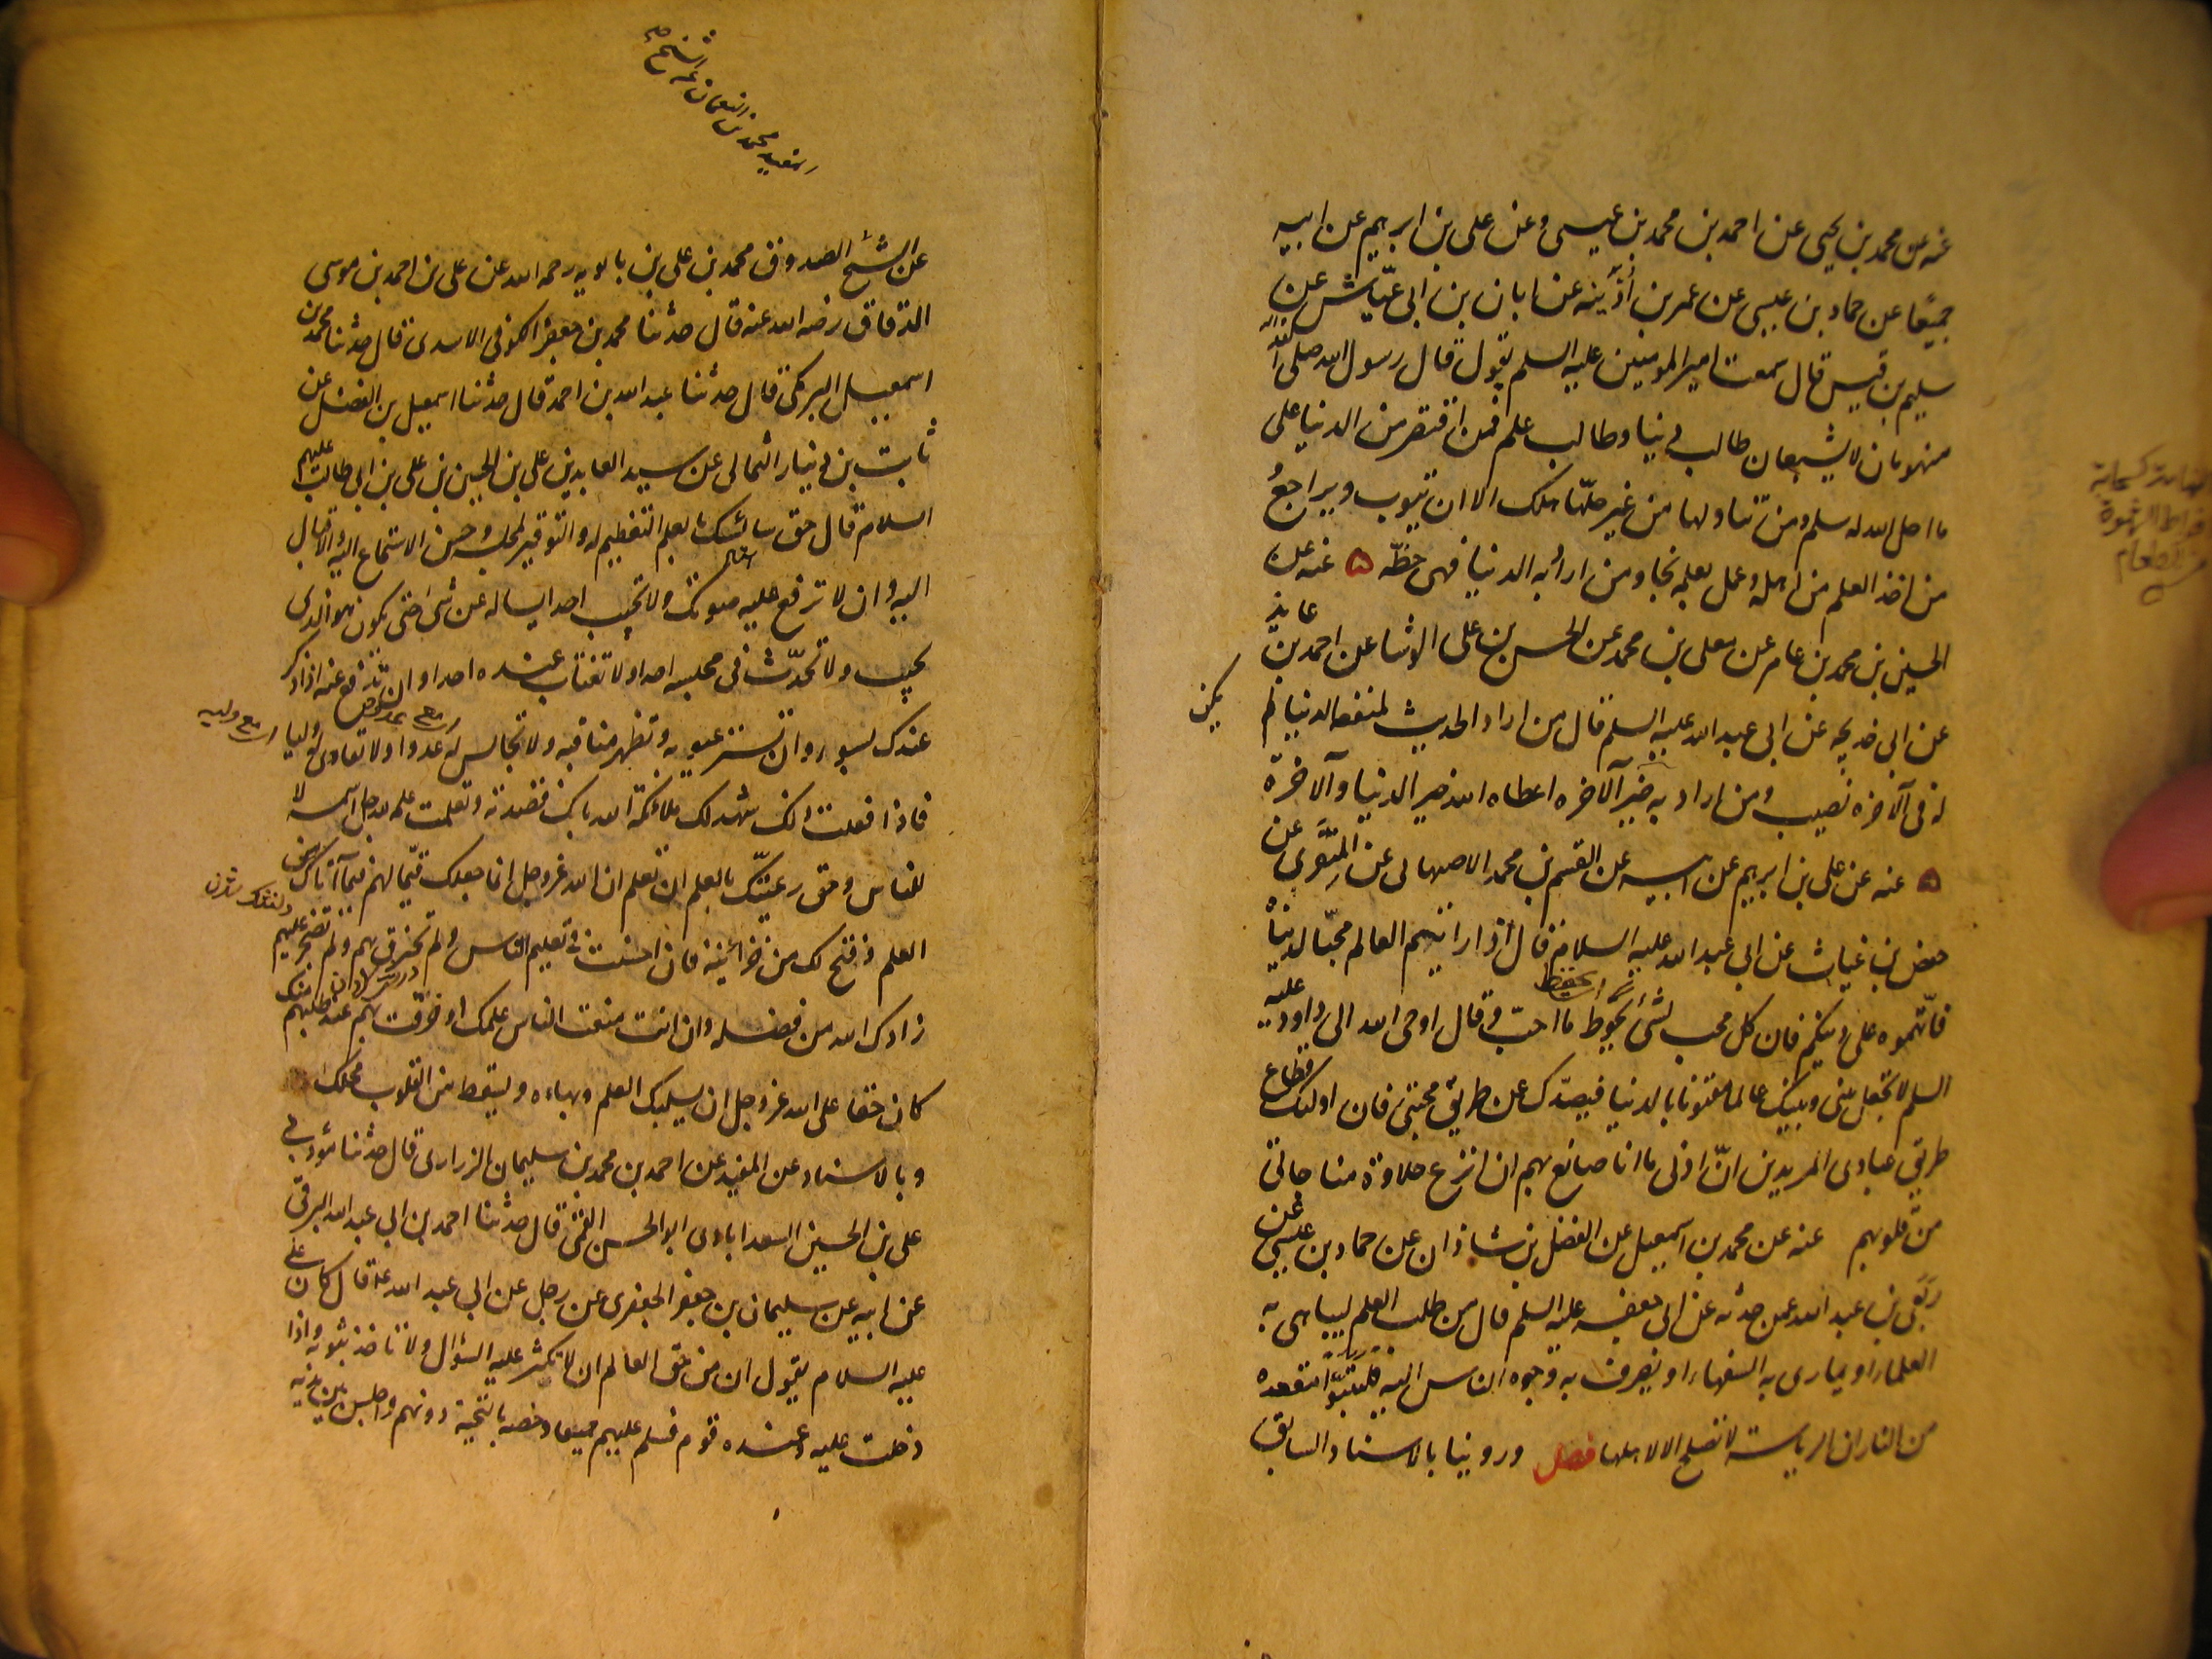 عنه عن محمد بن يحيى عن احمد بن محمد بن عيسى وعن على بن ابرهيم عن ابيه
جميعًا عن حماد بن عيسى عن عمر بن أُذَينه عن ابان بن ابى عيّاش عن
سليم بن قيس قال سمعت امير المومنين عليه السلم يقول قال رسول الله صلى الله
منهومان لا يشبعان طالب دنيا وطالب علم فمن اقتصر من الدنيا على
ما احل الله له سلم ومن تناولها من غير حلّها هلك الا ان يتوب ويراجعُ
من اخذ العلم من اهله وعمل بعلمه نجا ومن اراد به الدنيا فهى حظّه ۵ عنه عن
الحسين بن محمد بن عامر عن معلى بن محمد عن الحسن بن على الوشا عن احمد بن عايذ
عن ابى خديجه عن ابى عبد الله عليه السلم قال من اراد الحديث لمنفعه الدنيا لم يكن
له فى الآخره نصيب ومن اراد به خير الآخره اعطاه الله خير الدنيا والآخرة
۵ عنه عن على بن ابرهيم عن ابيه عن القسم بن محمد الاصبهانى عن المنقرى عن
حفص بن غياث عن ابى عبد الله عليه السلام قال اذا رايتم العالم محبّا لدنياه
فاتّهموه على دينكم فان كل محب لشئ يحوط ما احبّ وقال اوحى الله الى داود عليه
السلم لا تجعل بينى وبينك عالما مفتونا بالدنيا فيصدّك عن طريق محبتى فان اولئك قطاع
طريق عبادى المريدين انّ ادنى ما انا صانع بهم ان انزع حلاوة مناجاتى
من قلوبهم عنه عن محمد بن اسمعيل عن الفضل بن شاذان عن حماد بن عيسى عن
ربعى بن عبد الله عمن حدثه عن ابى جعفر عليه السلم قال من طلب العلم ليباهى به
العلماء او يمارى به السفهاء او يصرف به وجوه الناس اليه فليتبوّأ مقعده
من النار ان الرياسة لا تصلح الا لاهلها فصل وروينا بالاسناد السابق
المفيد محمد بن النعمان عن الشيخ
عن الشيخ الصدوق محمد بن على بن بابويه رحمه الله عن على بن احمد بن موسى
الدقاق رضى الله عنه قال حدثنا محمد بن جعفر الكوفى الاسدى قال حدثنا محمد بن
اسمعيل البرمكى قال حدثنا عبد الله بن احمد قال حدثنا اسمعيل بن الفضل عن
ثابت بن دينار الثمالى عن سيد العابدين على بن الحسين بن على بن ابى طالب عليهم
السلام قال حق سائسك بالعلم التعظيم له والتوقير لمجلسه وحسن الاستماع اليه والاقبال
اليه وان لا ترفع عليه صوتك ولا تجيب احدا يساله عن شئ حتى يكون هو الذى
يجيب ولا تحدّث فى مجلسه احدا ولا تغتاب عنده احدا وان تدفع عنه اذا ذكر
عندك بسوء وان تستر عيوبه وتظهر مناقبه ولا تجالس له عدوا ولا تعادى له وليا
فاذا فعلت ذلك شهد لك ملائكة الله بانك قصدته وتعلمت علمه لله جل اسمه لا
للناس وحق رعيتّك بالعلم ان تعلم ان الله عز وجل انما جعلك قيّما لهم فيما آتاك من
العلم وفتح لك من خزائنه فان احسنت فى تعليم الناس ولم تخرق بهم ولم تضجر عليهم
زادك الله من فضله وان انت منعت الناس علمك او خرقت بهم عند طلبهم منك
كان حقا على الله عز وجل ان يسلبك العلم وبهاءه ويسقط من القلوب محلك
وبالاسناد عن المفيد عن احمد بن محمد بن سليمان الزرارى قال حدثنا مؤدبى
على بن الحسين السعدابادى ابو الحسن القمى قال حدثنا احمد بن ابى عبد الله البرقى
عن ابيه عن سليمان بن جعفر الجعفرى عن رجل عن ابى عبد الله ع قال كان على
عليه السلام يقول ان من حق العالم ان لا تكثر عليه السؤال ولا تاخذ بثوبه واذا
دخلت عليه وعنده قوم فسلم عليهم جميعا وخصه بالتحية دونهم واجلس بين يديه